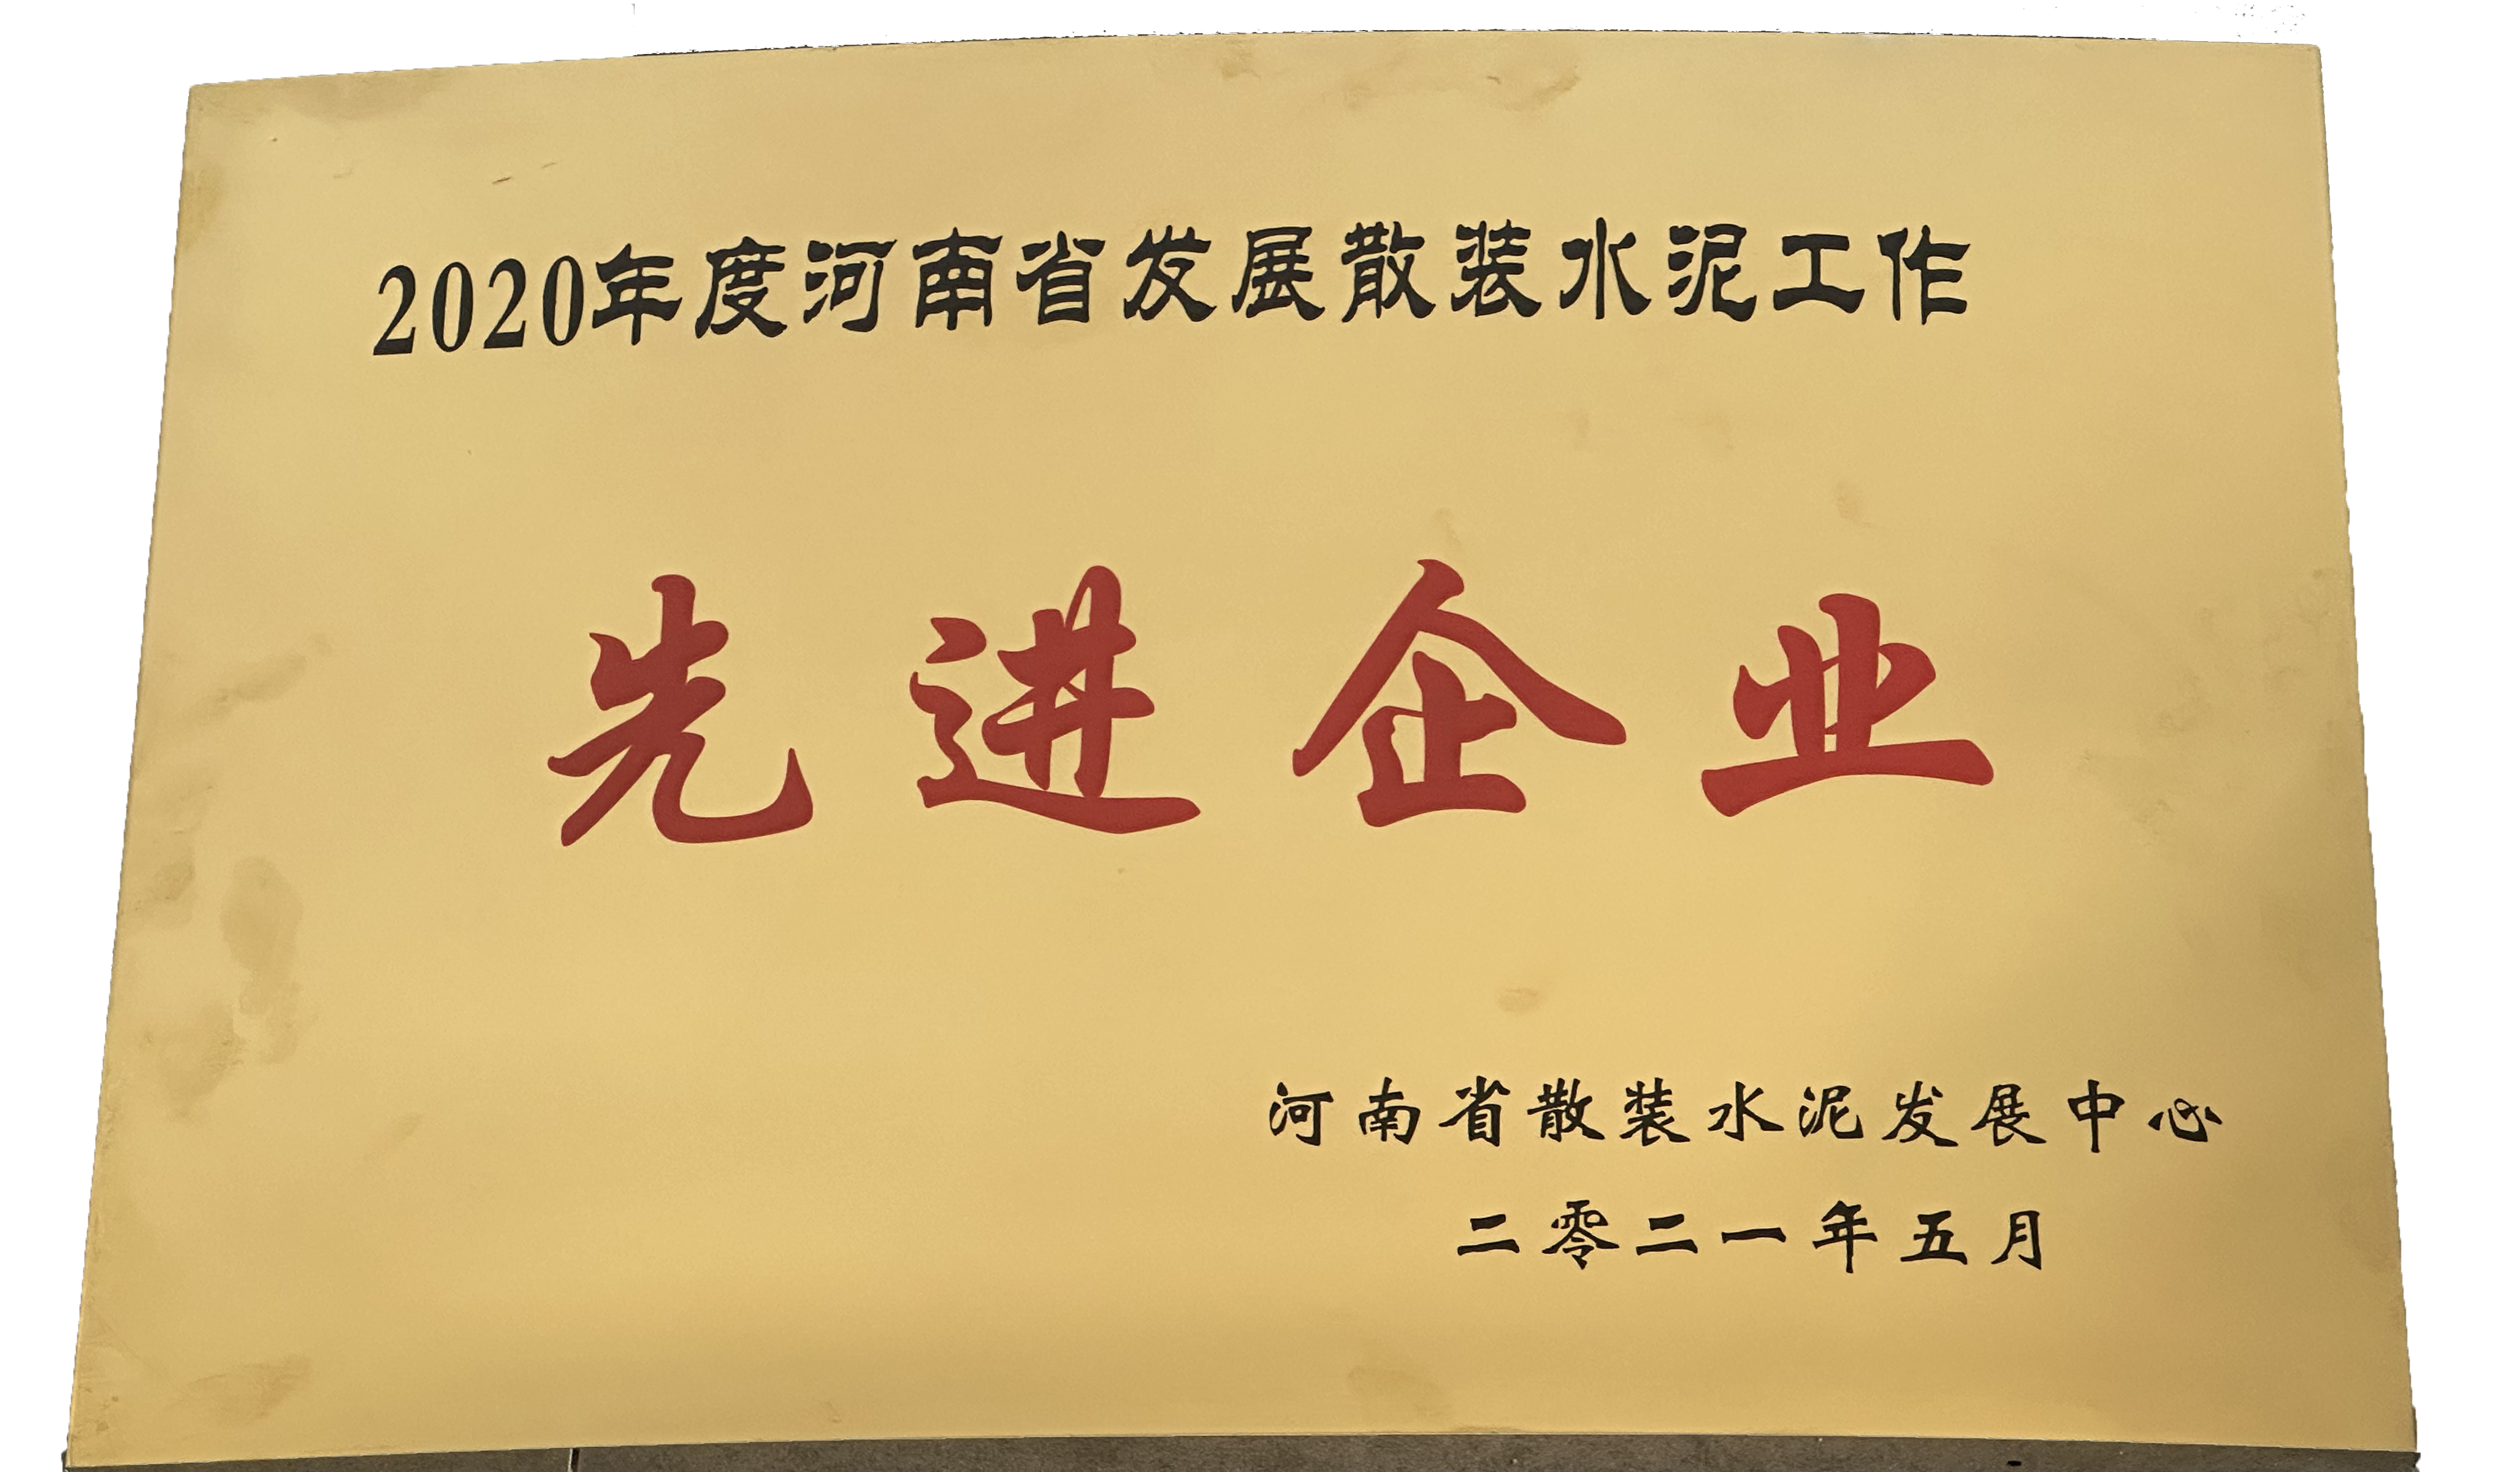 2020年度河南省发展散装水泥工作
先进企业
河南省散装水泥发展中心
二零二一年五月